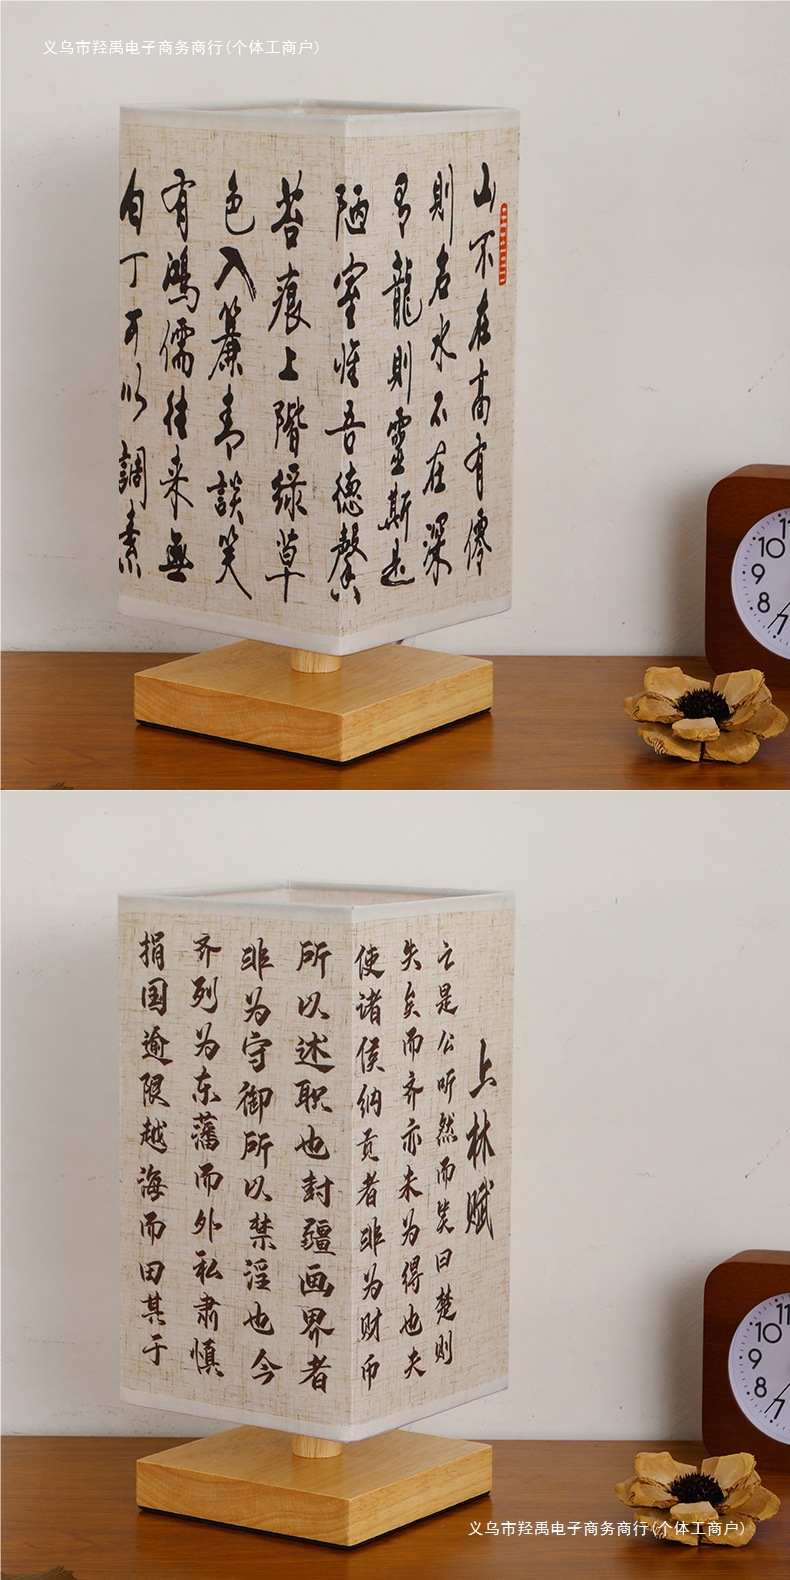 义乌市羟禹电子商务商行(个体工商户)
山不在高有僊
則名水不在深
有龍則靈斯是
陋室惟吾德馨
苔痕上階綠草
色入簾青談笑
有鴻儒往来無
白丁可以調素
11
10
9
8
7
上林赋
亡是公听然而笑曰楚则
失矣而齐亦未为得也夫
使诸侯纳贡者非为财币
所以述职也封疆画界者
非为守御所以禁淫也今
齐列为东藩而外私肃慎
捐国逾限越海而田其于
11
10
9
8
7
义乌市羟禹电子商务商行(个体工商户)